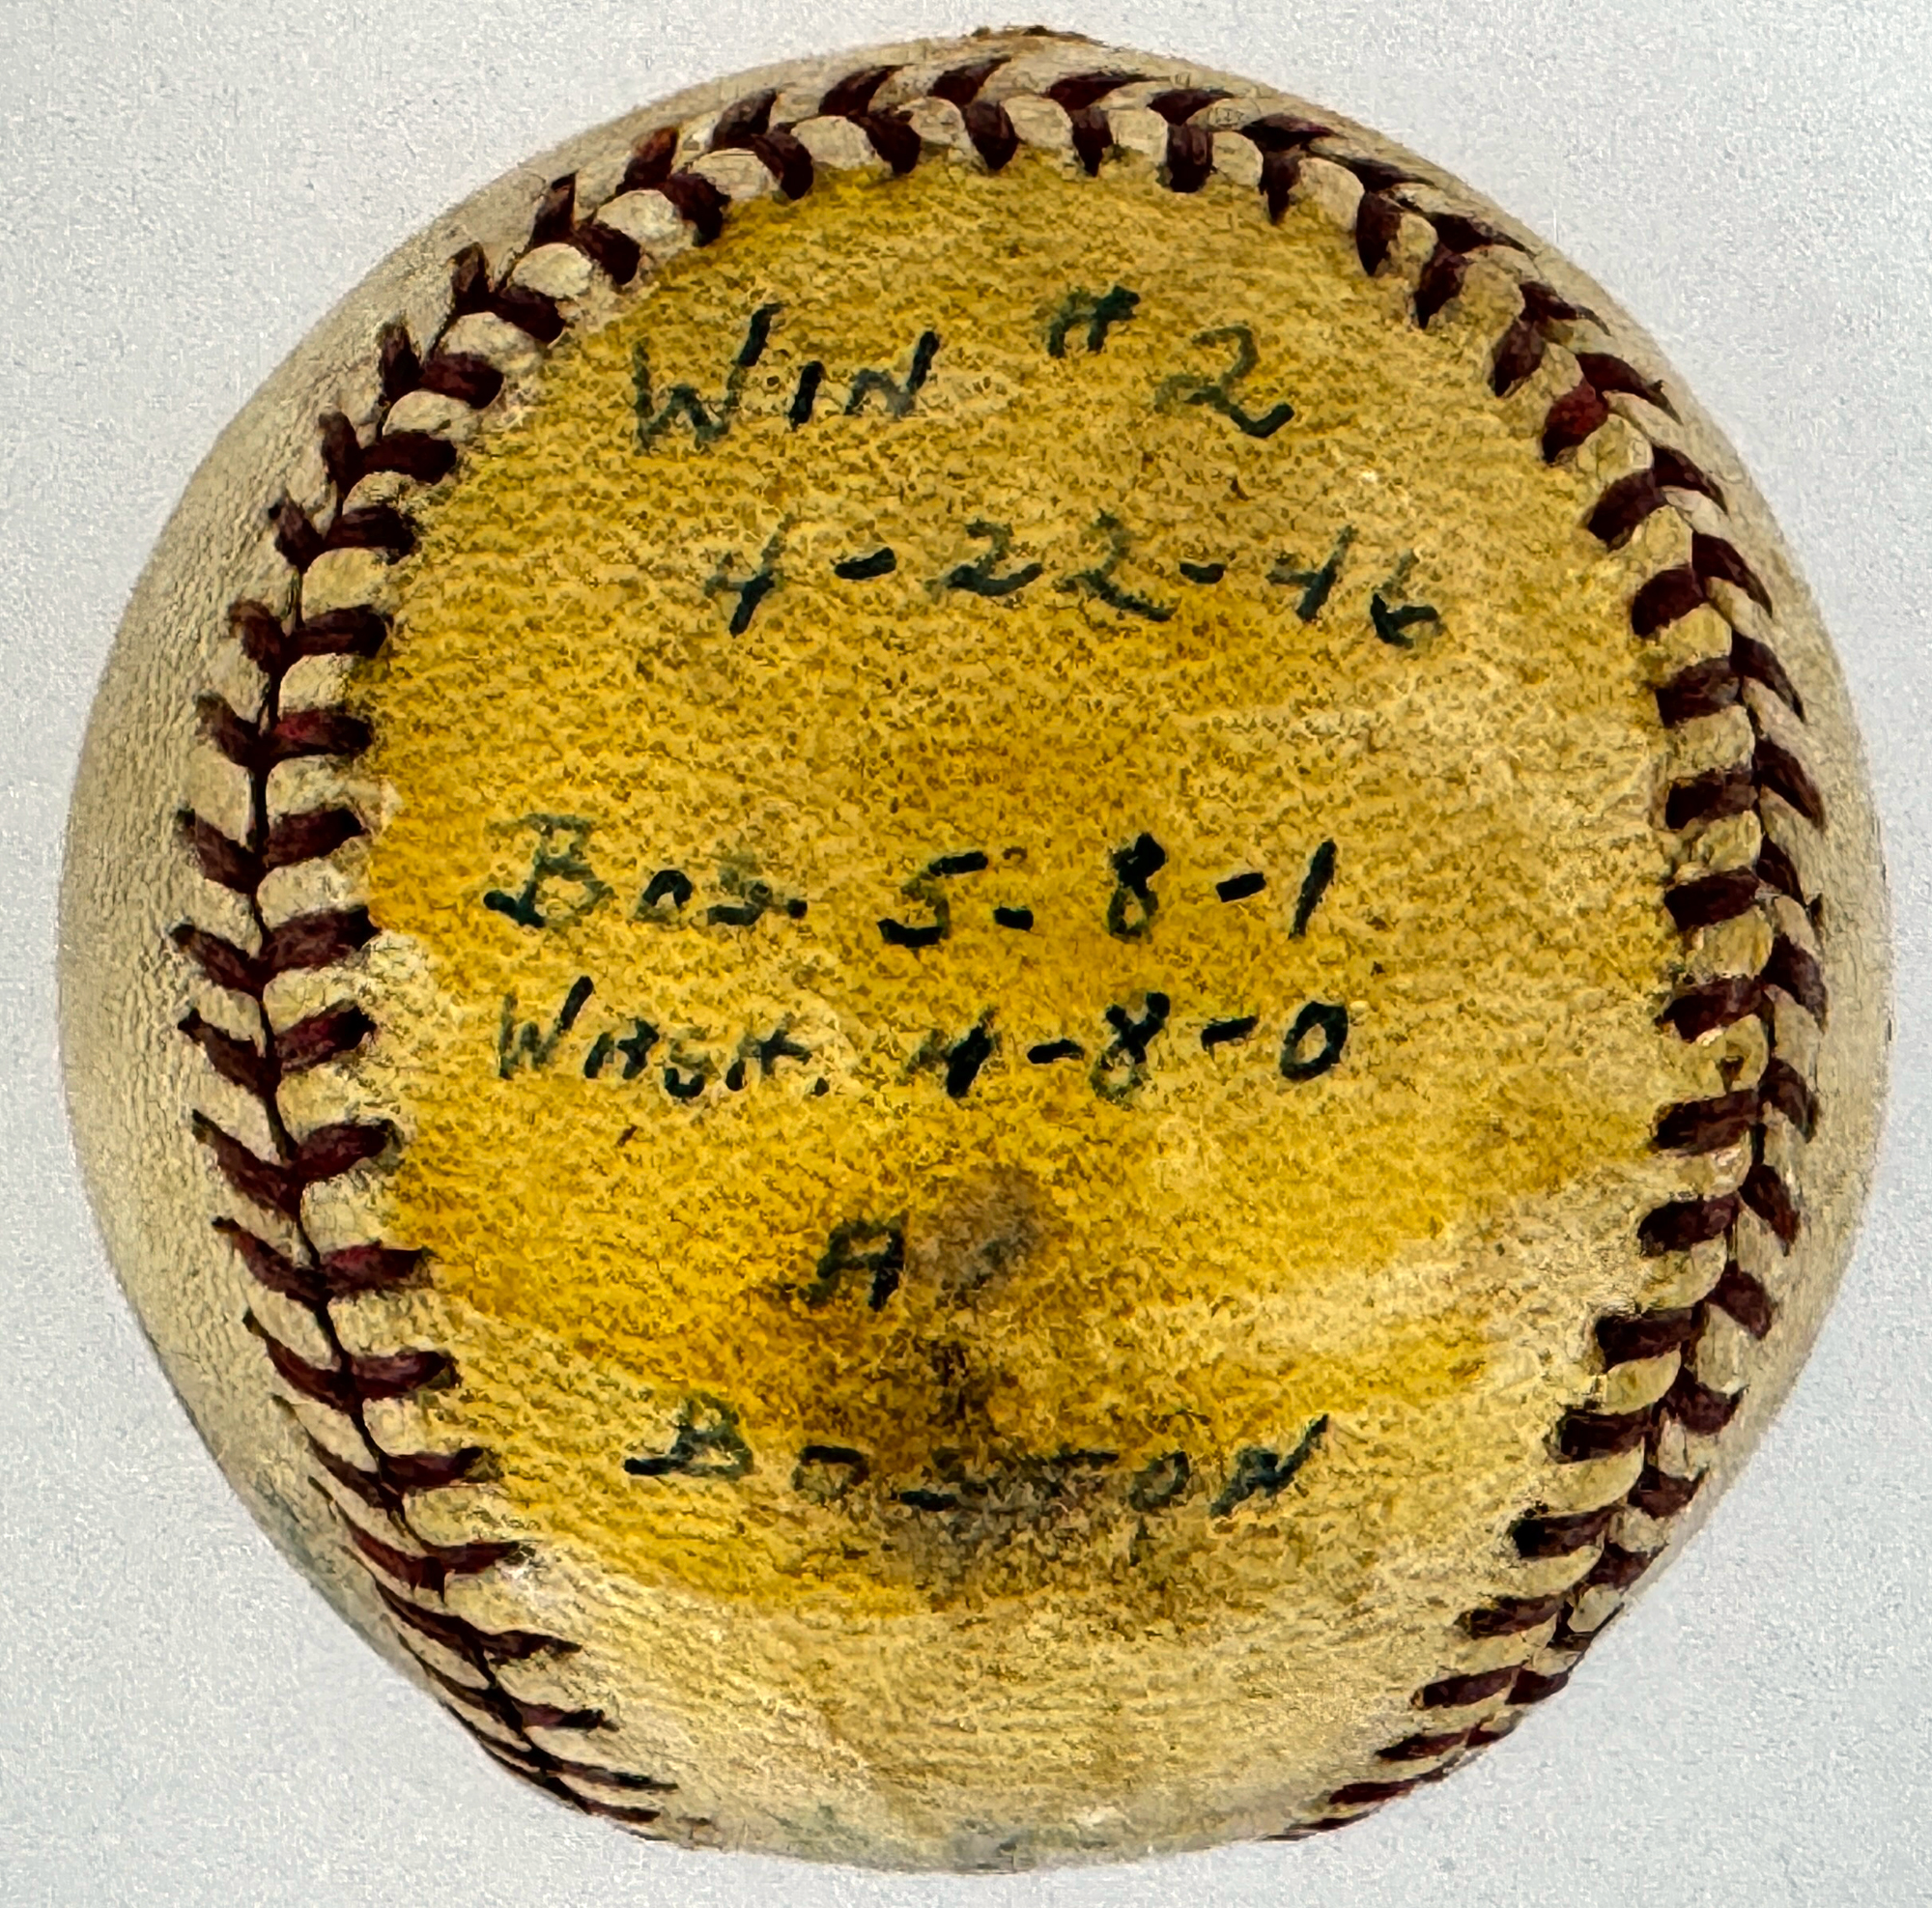 WIN # 2
4-22-46
BOS. 5-8-1
WASH. 4-8-0
A
BOSTON